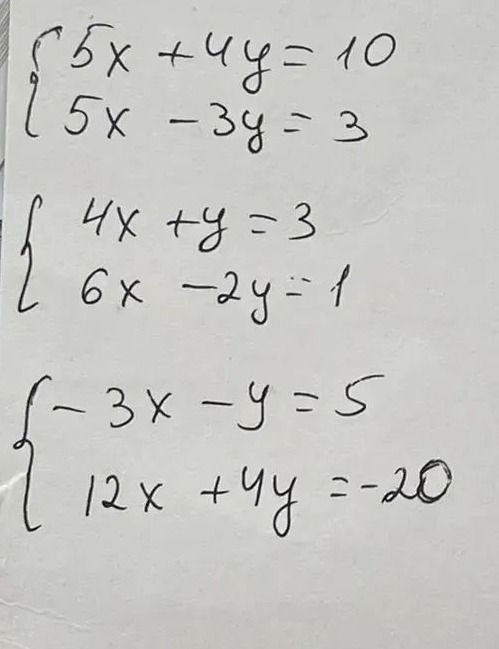 5x + 4y = 10
5x - 3y = 3
4x + y = 3
6x - 2y = 1
- 3x - y = 5
12x + 4y = -20